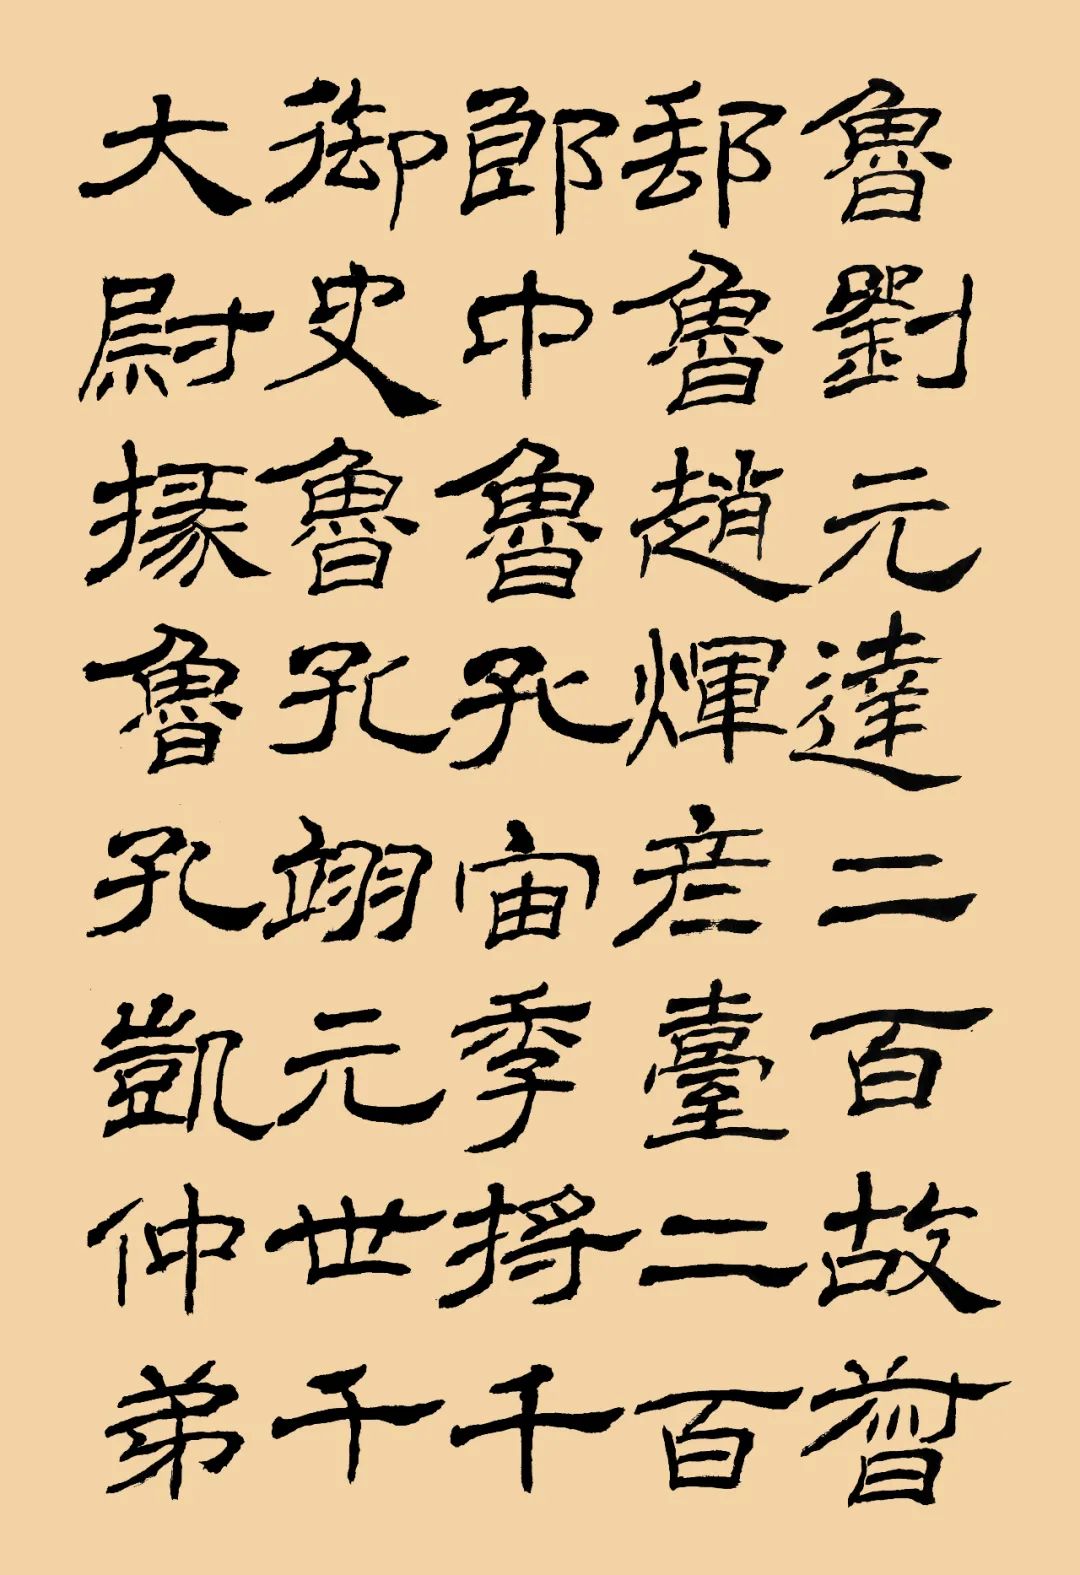 魯劉元達二百故督
郵魯趙煇彥臺二百
郎中魯孔宙季將千
御史魯孔翊元世千
大尉掾魯孔凱仲弟